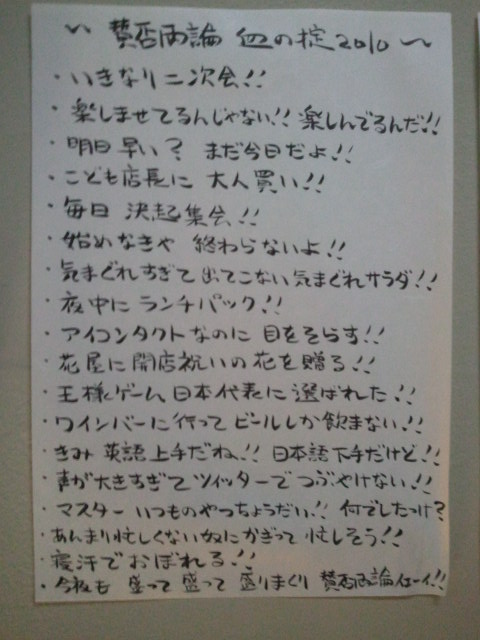 〜 賛否両論 血の掟2010 〜
・いきなり二次会!!
・楽しませてるんじゃない!! 楽しんでるんだ!!
・明日早い? まだ今日だよ!!
・こども店長に 大人買い!!
・毎日 決起集会!!
・始めなきゃ 終わらないよ!!
・気まぐれすぎて出てこない気まぐれサラダ!!
・夜中に ランチパック!!
・アイコンタクトなのに 目をそらす!!
・花屋に開店祝いの花を贈る!!
・王様ゲーム 日本代表に 選ばれた!!
・ワインバーに行って ビールしか飲まない!!
・きみ 英語上手だね!! 日本語下手だけど!!
・声が大きすぎて ツイッターで つぶやけない!!
・マスター いつものやつちょうだい!! 何でしたっけ?
・あんまり忙しくない奴にかぎって 忙しそう!!
・寝汗で おぼれる!!
・今夜も 盛って 盛って 盛りまくり 賛否両論 イェーイ!!